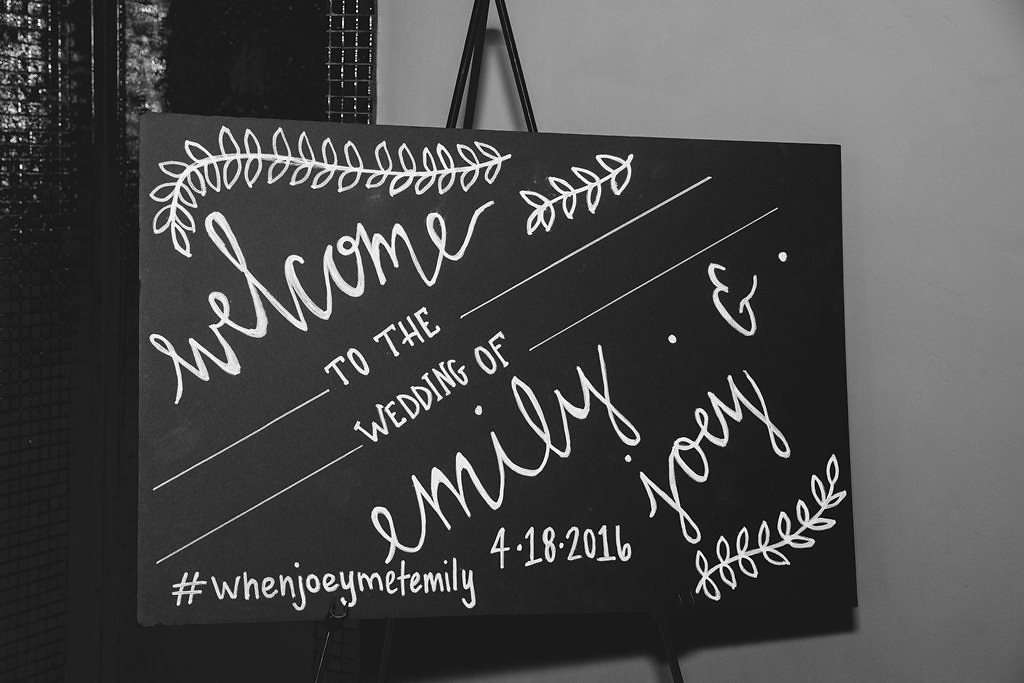 welcome
TO THE
WEDDING OF
emily
· & ·
joey
4·18·2016
#whenjoeymetemily